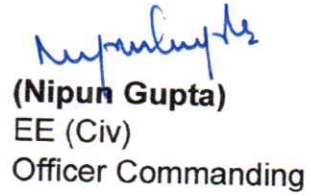 (Nipun Gupta)
EE (Civ)
Officer Commanding